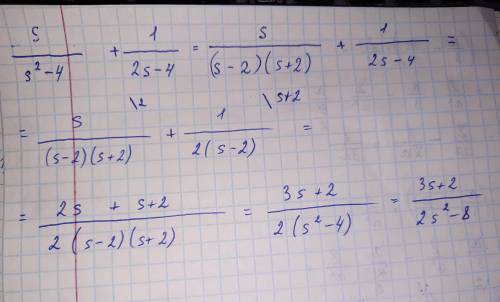 s/(s²-4) + 1/(2s-4) = s/((s-2)(s+2)) + 1/(2s-4) =
= s\2/((s-2)(s+2)) + 1\s+2/(2(s-2)) =
= (2s + s+2)/(2(s-2)(s+2)) = (3s+2)/(2(s²-4)) = (3s+2)/(2s²-8)